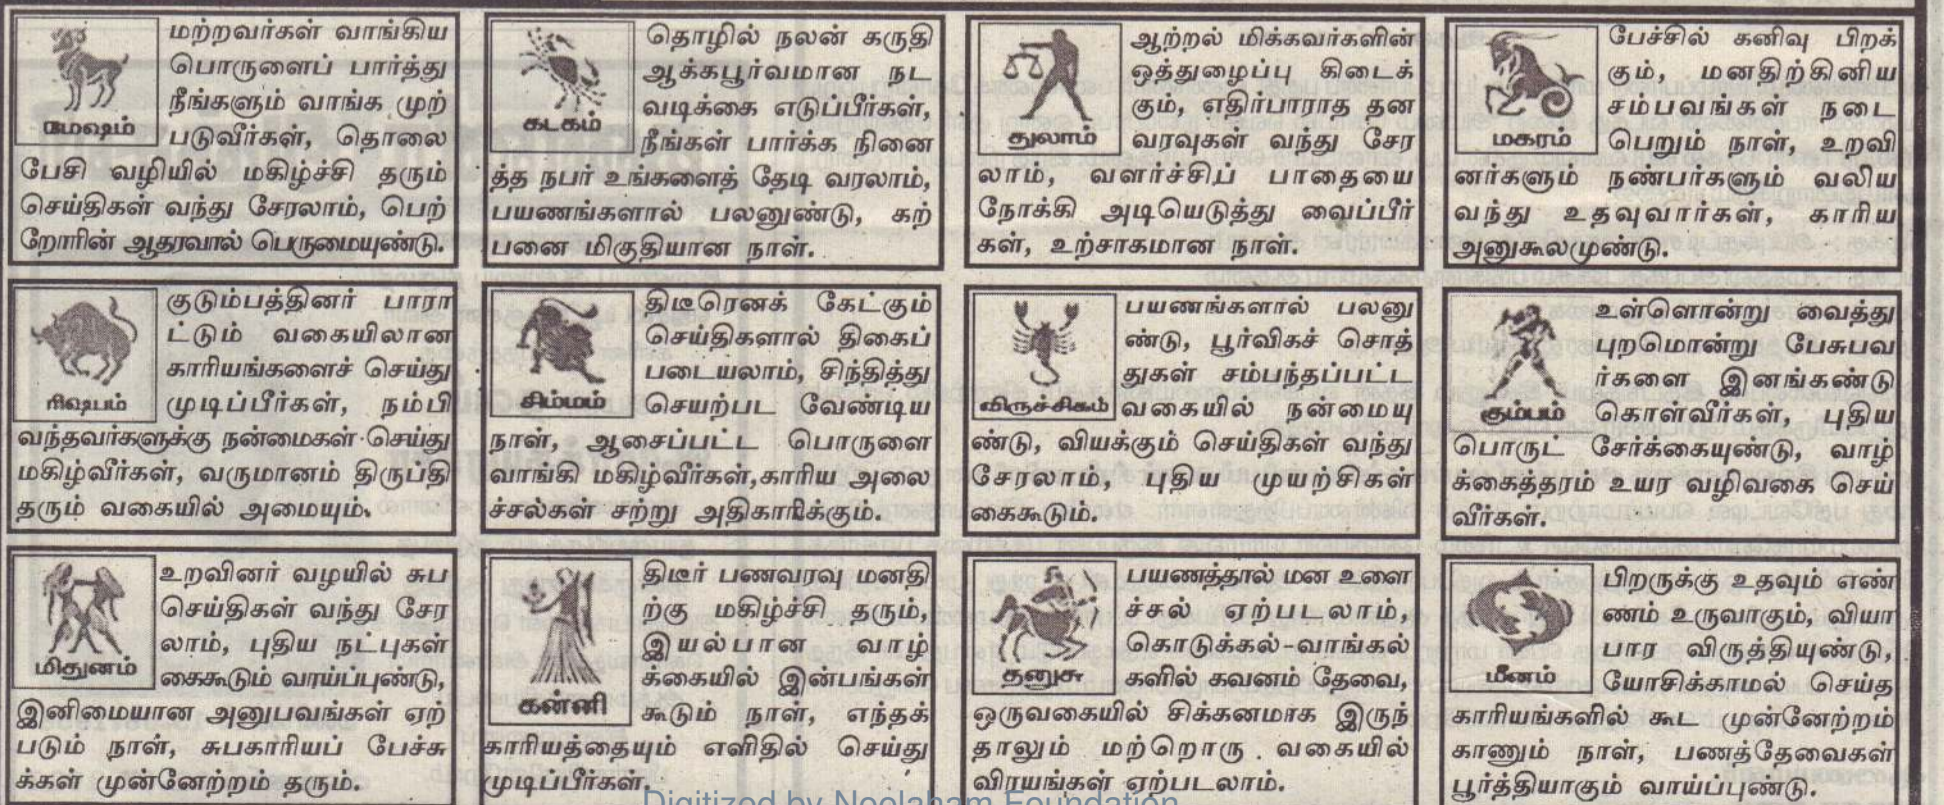 மேஷம்
மற்றவர்கள் வாங்கிய
பொருளைப் பார்த்து
நீங்களும் வாங்க முற்
படுவீர்கள், தொலை
பேசி வழியில் மகிழ்ச்சி தரும்
செய்திகள் வந்து சேரலாம், பெற்
றோரின் ஆதரவால் பெருமையுண்டு.
ரிஷபம்
குடும்பத்தினர் பாரா
ட்டும் வகையிலான
காரியங்களைச் செய்து
முடிப்பீர்கள், நம்பி
வந்தவர்களுக்கு நன்மைகள் செய்து
மகிழ்வீர்கள், வருமானம் திருப்தி
தரும் வகையில் அமையும்.
மிதுனம்
உறவினர் வழயில் சுப
செய்திகள் வந்து சேர
லாம், புதிய நட்புகள்
கைகூடும் வாய்ப்புண்டு,
இனிமையான அனுபவங்கள் ஏற்
படும் நாள், சுபகாரியப் பேச்சு
க்கள் முன்னேற்றம் தரும்.
கடகம்
தொழில் நலன் கருதி
ஆக்கபூர்வமான நட
வடிக்கை எடுப்பீர்கள்,
நீங்கள் பார்க்க நினை
த்த நபர் உங்களைத் தேடி வரலாம்,
பயணங்களால் பலனுண்டு, கற்
பனை மிகுதியான நாள்.
சிம்மம்
திடீரெனக் கேட்கும்
செய்திகளால் திகைப்
படையலாம், சிந்தித்து
செயற்பட வேண்டிய
நாள், ஆசைப்பட்ட பொருளை
வாங்கி மகிழ்வீர்கள்,காரிய அலை
ச்சல்கள் சற்று அதிகாரிக்கும்.
கன்னி
திடீர் பணவரவு மனதி
ற்கு மகிழ்ச்சி தரும்,
இயல்பான வாழ்
க்கையில் இன்பங்கள்
கூடும் நாள், எந்தக்
காரியத்தையும் எளிதில் செய்து
முடிப்பீர்கள்.
துலாம்
ஆற்றல் மிக்கவர்களின்
ஒத்துழைப்பு கிடைக்
கும், எதிர்பாராத தன
வரவுகள் வந்து சேர
லாம், வளர்ச்சிப் பாதையை
நோக்கி அடியெடுத்து வைப்பீர்
கள், உற்சாகமான நாள்.
விருச்சிகம்
பயணங்களால் பலனு
ண்டு, பூர்விகச் சொத்
துகள் சம்பந்தப்பட்ட
வகையில் நன்மையு
ண்டு, வியக்கும் செய்திகள் வந்து
சேரலாம், புதிய முயற்சிகள்
கைகூடும்.
தனுசு
பயணத்தால் மன உளை
ச்சல் ஏற்படலாம்,
கொடுக்கல்-வாங்கல்
களில் கவனம் தேவை,
ஒருவகையில் சிக்கனமாக இருந்
தாலும் மற்றொரு வகையில்
விரயங்கள் ஏற்படலாம்.
மகரம்
பேச்சில் கனிவு பிறக்
கும், மனதிற்கினிய
சம்பவங்கள் நடை
பெறும் நாள், உறவி
னர்களும் நண்பர்களும் வலிய
வந்து உதவுவார்கள், காரிய
அனுகூலமுண்டு.
கும்பம்
உள்ளொன்று வைத்து
புறமொன்று பேசுபவ
ர்களை இனங்கண்டு
கொள்வீர்கள், புதிய
பொருட் சேர்க்கையுண்டு, வாழ்
க்கைத்தரம் உயர வழிவகை செய்
வீர்கள்.
மீனம்
பிறருக்கு உதவும் எண்
ணம் உருவாகும், வியா
பார விருத்தியுண்டு,
யோசிக்காமல் செய்த
காரியங்களில் கூட முன்னேற்றம்
காணும் நாள், பணத்தேவைகள்
பூர்த்தியாகும் வாய்ப்புண்டு.
Digitized by Noolaham Foundation